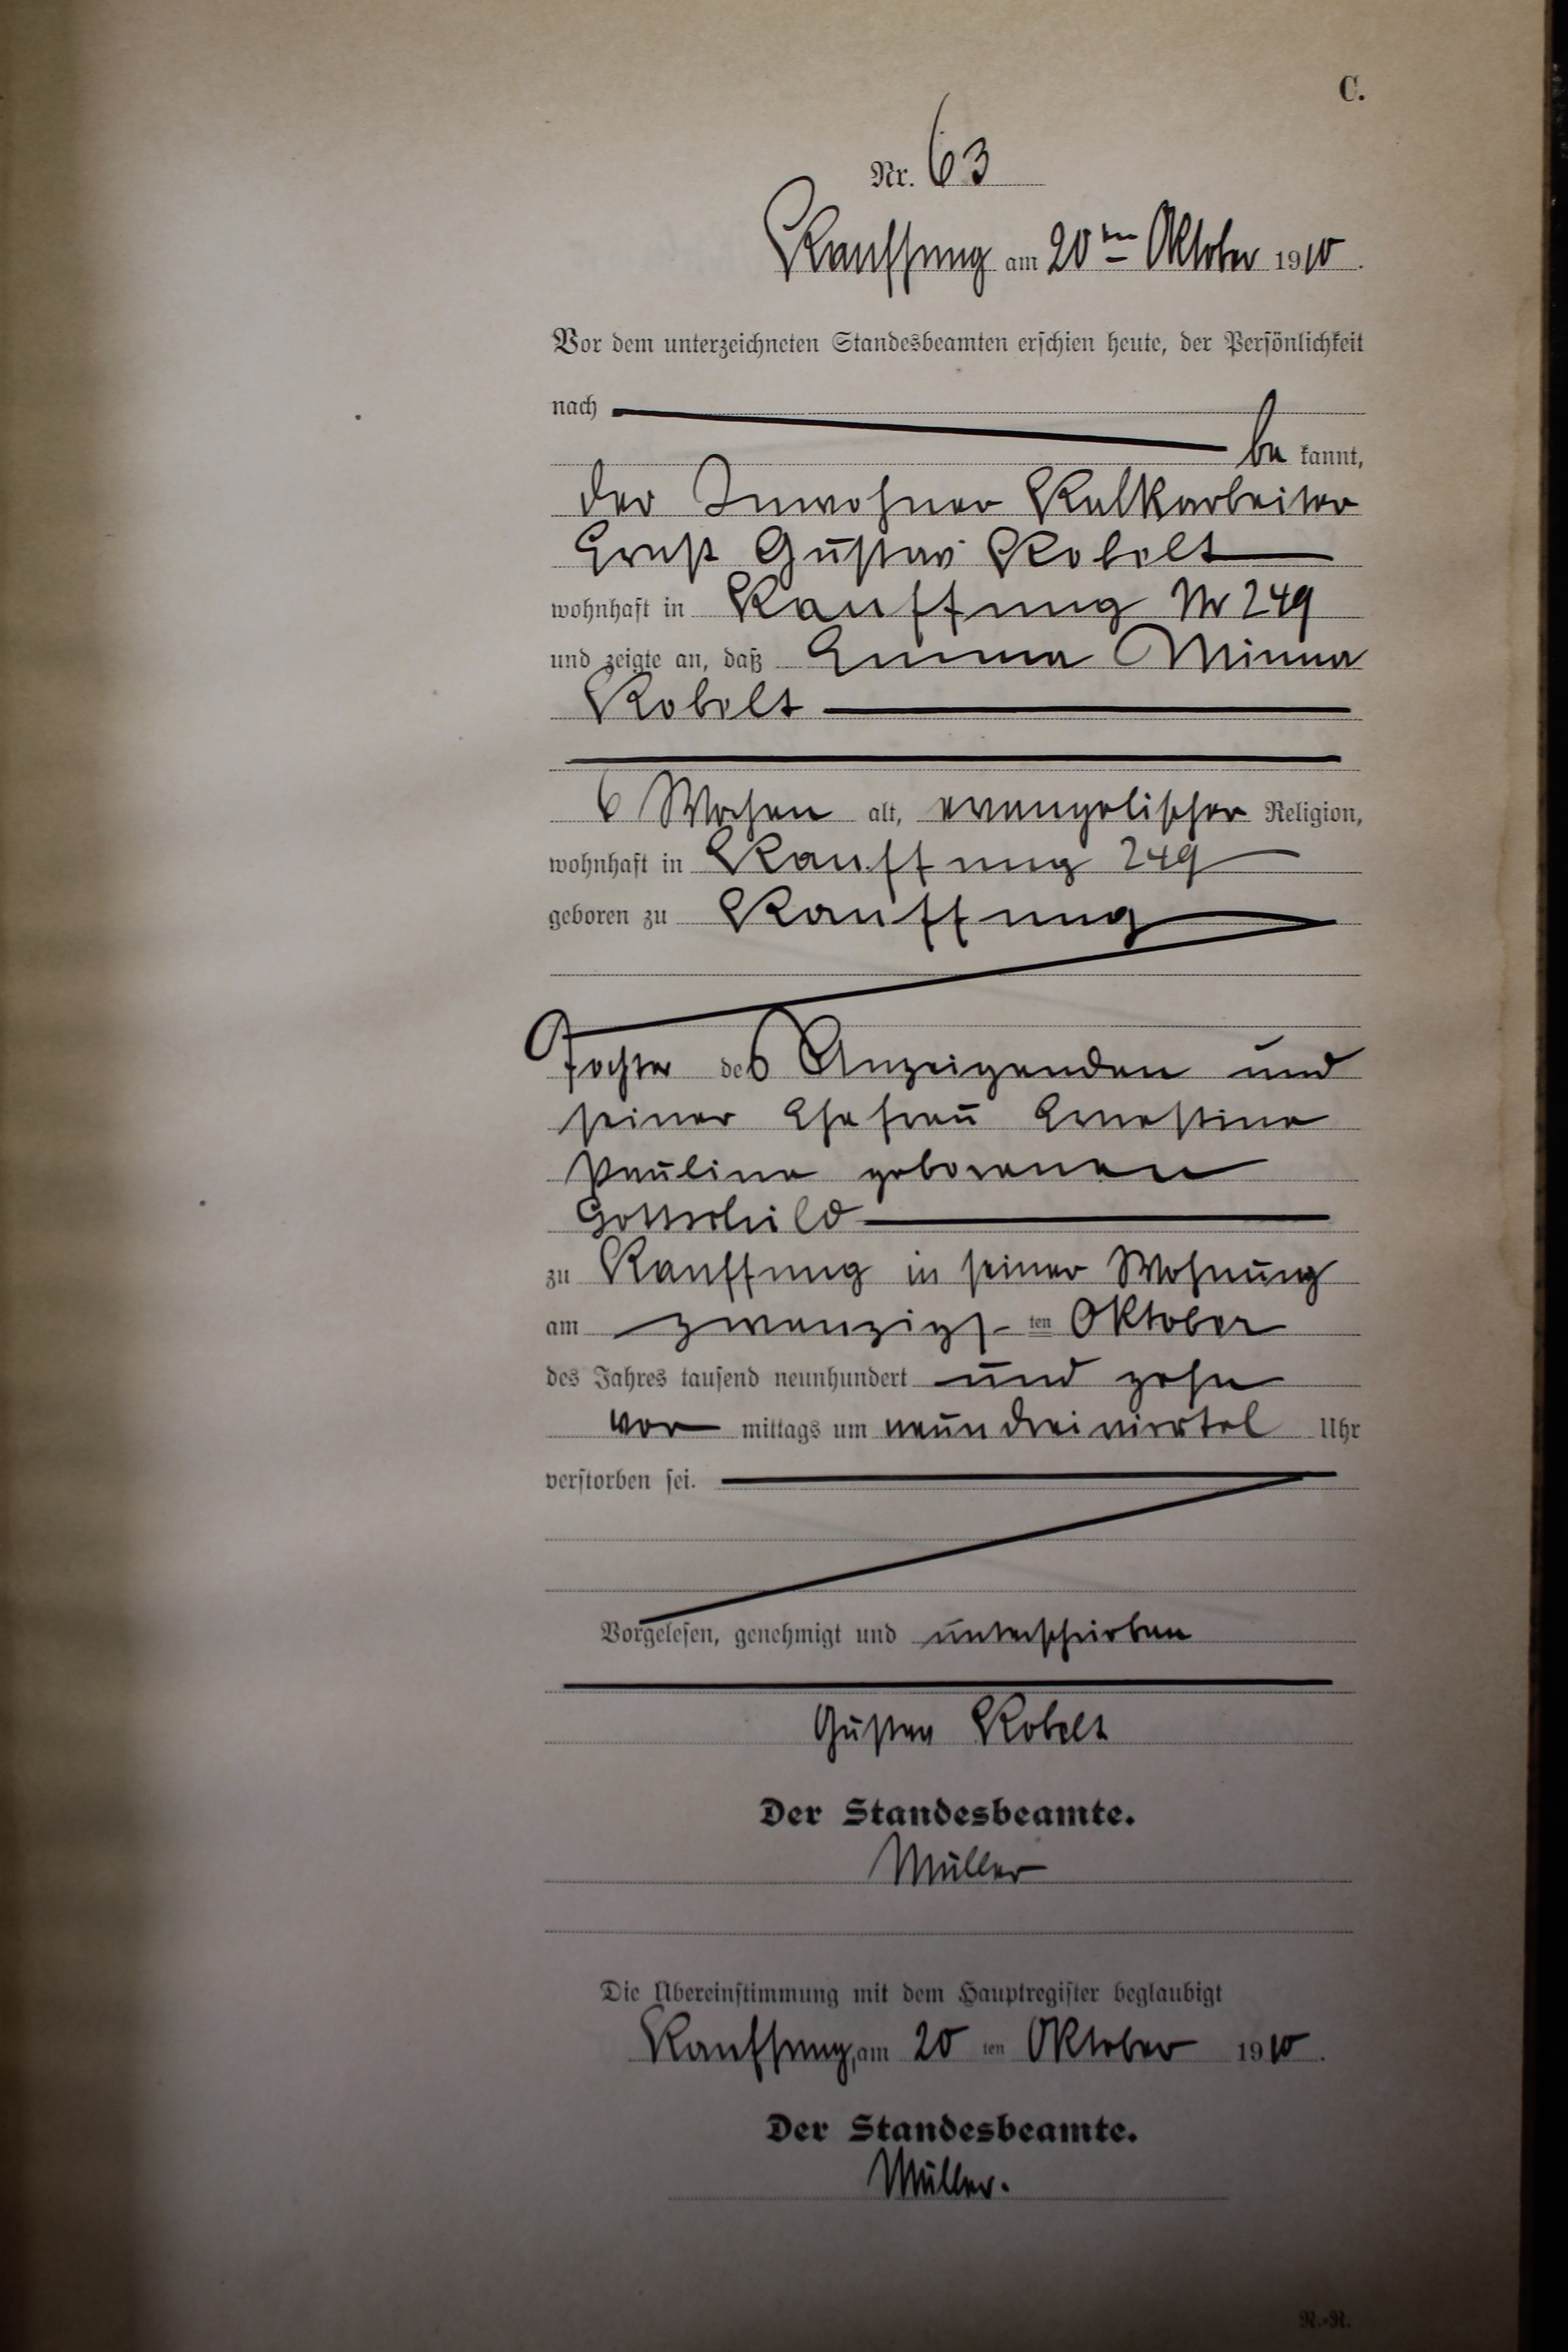 C.
Nr. 63
Kauffung am 20ten Oktober 1910.
Vor dem unterzeichneten Standesbeamten erschien heute, der Persönlichkeit
nach
be kannt,
der Inwohner Kalkarbeiter
Ernst Gustav Kobelt
wohnhaft in Kauffung Nr 249
und zeigte an, daß Emma Minna
Kobelt
6 Wochen alt, evangelischer Religion,
wohnhaft in Kauffung 249
geboren zu Kauffung
Tochter des Anzeigenden und
seiner Ehefrau Ernestine
Pauline geborenen
zu Kauffung in seiner Wohnung
am zwanzigsten Oktober
des Jahres tausend neunhundert und zehn
vor mittags um neun dreiviertel Uhr
verstorben sei.
Vorgelesen, genehmigt und unterschrieben
Gustav Kobelt
Der Standesbeamte.
Müller
Die Übereinstimmung mit dem Hauptregister beglaubigt
Kauffung, am 20 ten Oktober 1910.
Der Standesbeamte.
Müller.